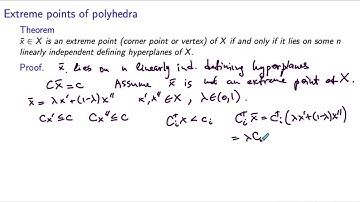 Extreme points of polyhedra
Theorem
x̄ ∈ X is an extreme point (corner point or vertex) of X if and only if it lies on some n
linearly independent defining hyperplanes of X.
Proof. x̄ lies on n linearly ind. defining hyperplanes
Cx̄ = c Assume x̄ is not an extreme point of X.
x̄ = λx' + (1-λ)x'' x', x'' ∈ X, λ ∈ (0,1).
Cx' ≤ c Cx'' ≤ c Cᵢᵀx < cᵢ Cᵢᵀx̄ = Cᵢᵀ(λx' + (1-λ)x'')
= λCᵢ